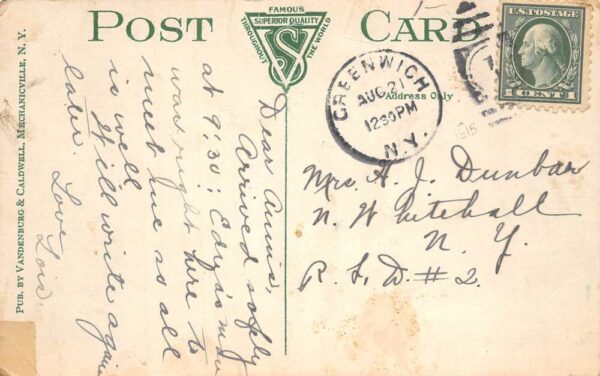 POST CARD
FAMOUS
SUPERIOR QUALITY
THROUGHOUT THE WORLD
S
PUB. BY VANDENBURG & CALDWELL, MECHANICVILLE, N. Y.
Address Only
GREENWICH
AUG 21
12 30 PM
N.Y.
U.S. POSTAGE
1 CENT 1
Dear Annie,
Arrived safely
at 9:30:
was right here to
meet me so all
is well
Will write again
later. Love
Lois.
Mrs. A. J. Dunbar
N. Whitehall
N. Y.
R. F. D. # 2.